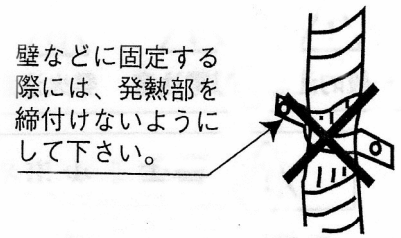 壁などに固定する
際には、発熱部を
締付けないように
して下さい。